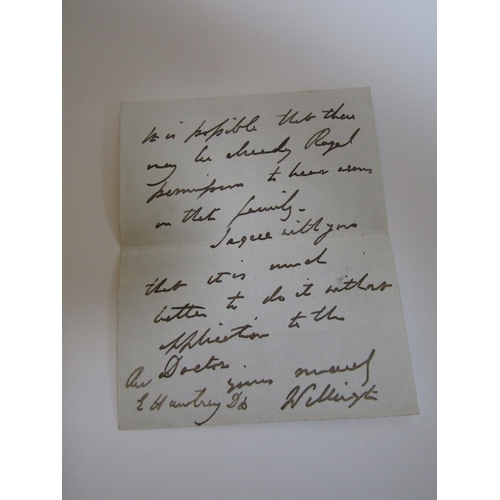 It is possible that there
may be already Royal
permission to bear arms
in that family.
I agree with you
that it is much
better to do it without
application to the
Doctor.
yours sincerely
Rev
E Hawtrey DD Wellington